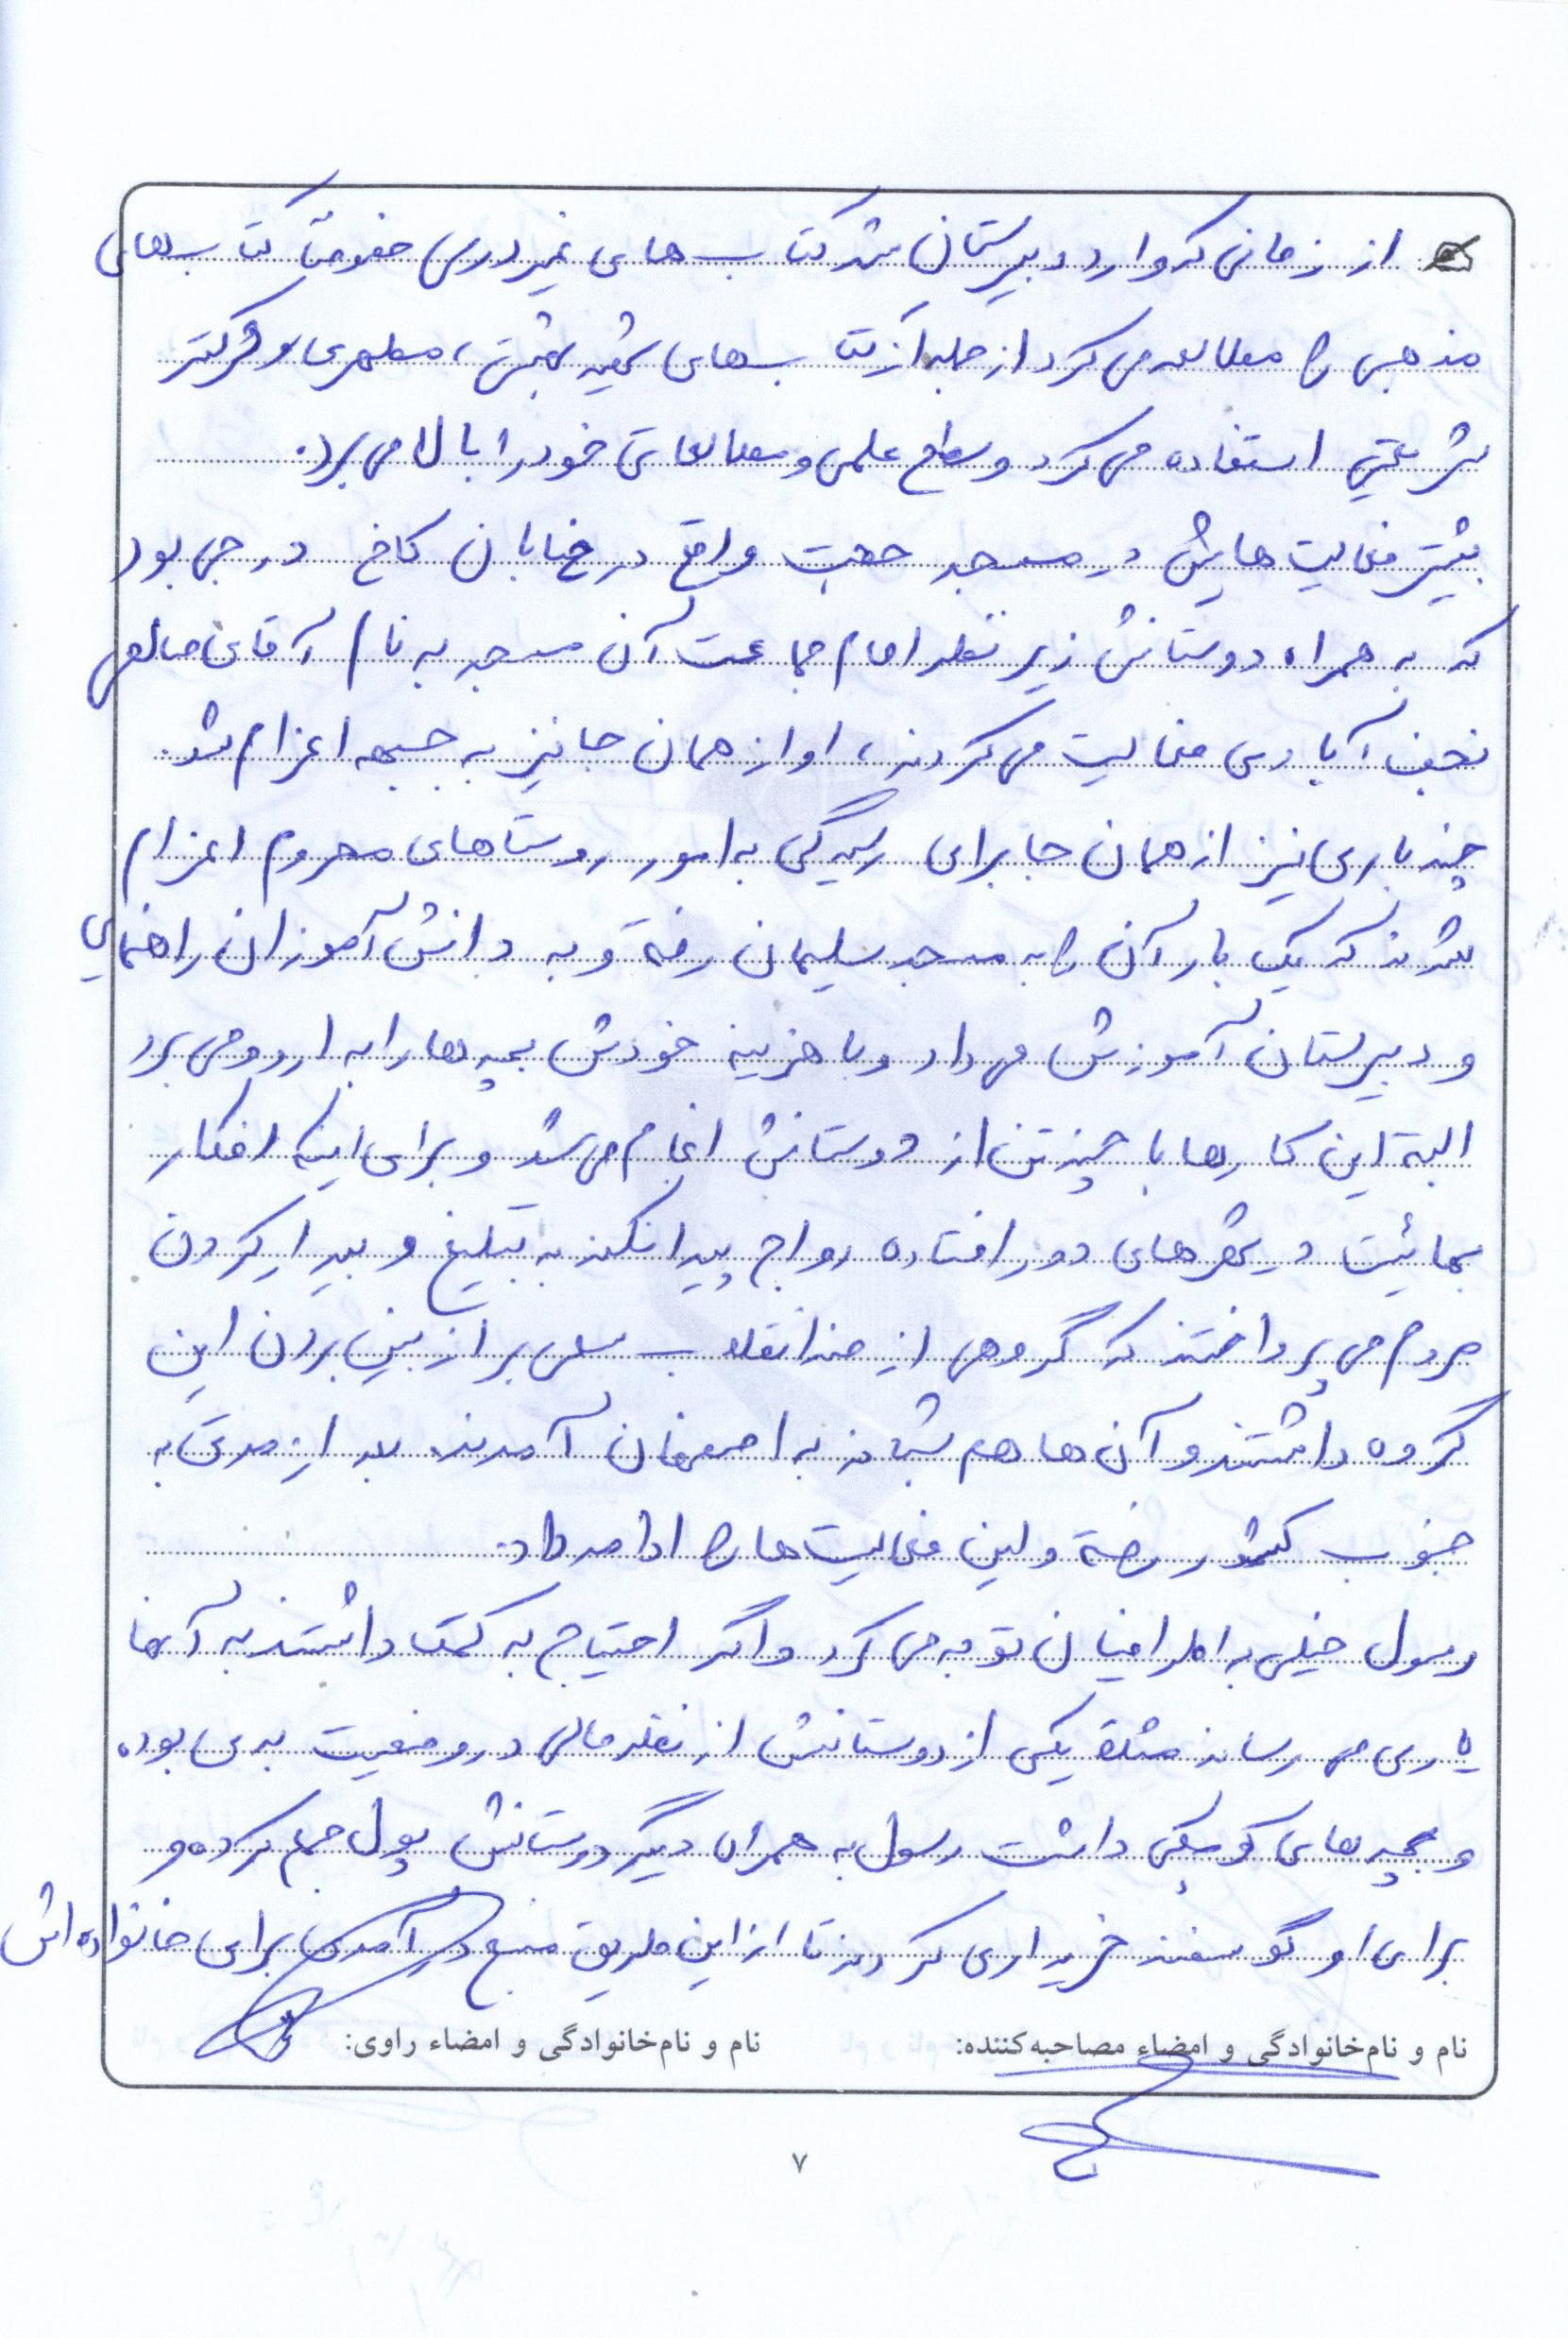 از زمانی که وارد دبیرستان شد کتاب های غیر درسی خصوصاً کتاب های
مذهبی را مطالعه می کرد از جمله از کتاب های شهید بهشتی، مطهری و دکتر
شریعتی استفاده می کرد و سطح علمی و مطالعاتی خود را بالا می برد.
بیشتر فعالیت هایش در مسجد حجت واقع در خیابان کاخ در جی بود
که به همراه دوستانش زیر نظر امام جماعت آن مسجد به نام آقای صالحی
نجف آبادی فعالیت می کردند، او از همان جا نیز به جبهه اعزام شد.
چند باری نیز از همان جا برای رسیدگی به امور روستاهای محروم اعزام
شدند که یک بار آن را به مسجد سلیمان رفته و به دانش آموزان راهنمایی
و دبیرستان آموزش می داد و با هزینه خودش بچه ها را به اردو می برد
البته این کارها با چند تن از دوستانش انجام می شد و برای اینکه افکار
بهائیت در شهرهای دور افتاده رواج پیدا نکند به تبلیغ و بیدار کردن
مردم می پرداختند که گروهی از ضد انقلاب سعی بر از بین بردن این
گروه داشتند و آن ها هم شبانه به اصفهان آمدند. بعد از مدتی به
جنوب کشور رفته و این فعالیت ها را ادامه داد.
رسول خیلی به اطرافیان توجه می کرد و اگر احتیاج به کمک داشتند به آنها
یاری می رساند مثلاً یکی از دوستانش از نظر مالی در وضعیت بدی بوده
و بچه های کوچکی داشت رسول به همراه دیگر دوستانش پول جمع کرده و
برای او گوسفند خریداری کردند تا از این طریق منبع درآمدی برای خانواده اش
نام و نام‌خانوادگی و امضاء مصاحبه‌کننده: نام و نام‌خانوادگی و امضاء راوی:
۷